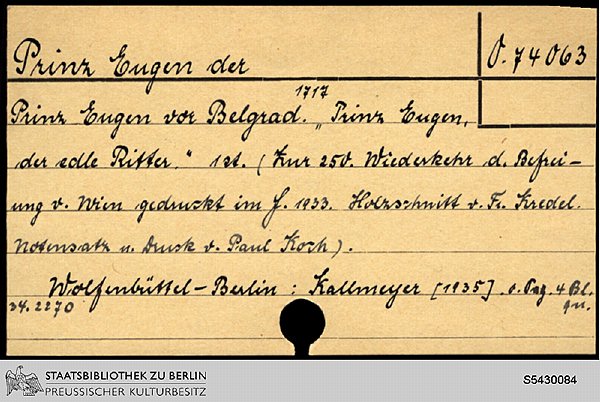 Prinz Eugen der
O. 74063
Prinz Eugen vor Belgrad. 1717 „Prinz Eugen,
der edle Ritter." 1st. (Zur 250. Wiederkehr d. Befrei-
ung v. Wien gedruckt im J. 1933. Holzschnitt v. Fr. Kredel.
Notensatz u. Druck v. Paul Koch).
Wolfenbüttel-Berlin: Kallmeyer [1935]. o. Pag. 4 Bl.
34.2270
qu.
STAATSBIBLIOTHEK ZU BERLIN
PREUSSISCHER KULTURBESITZ
S5430084